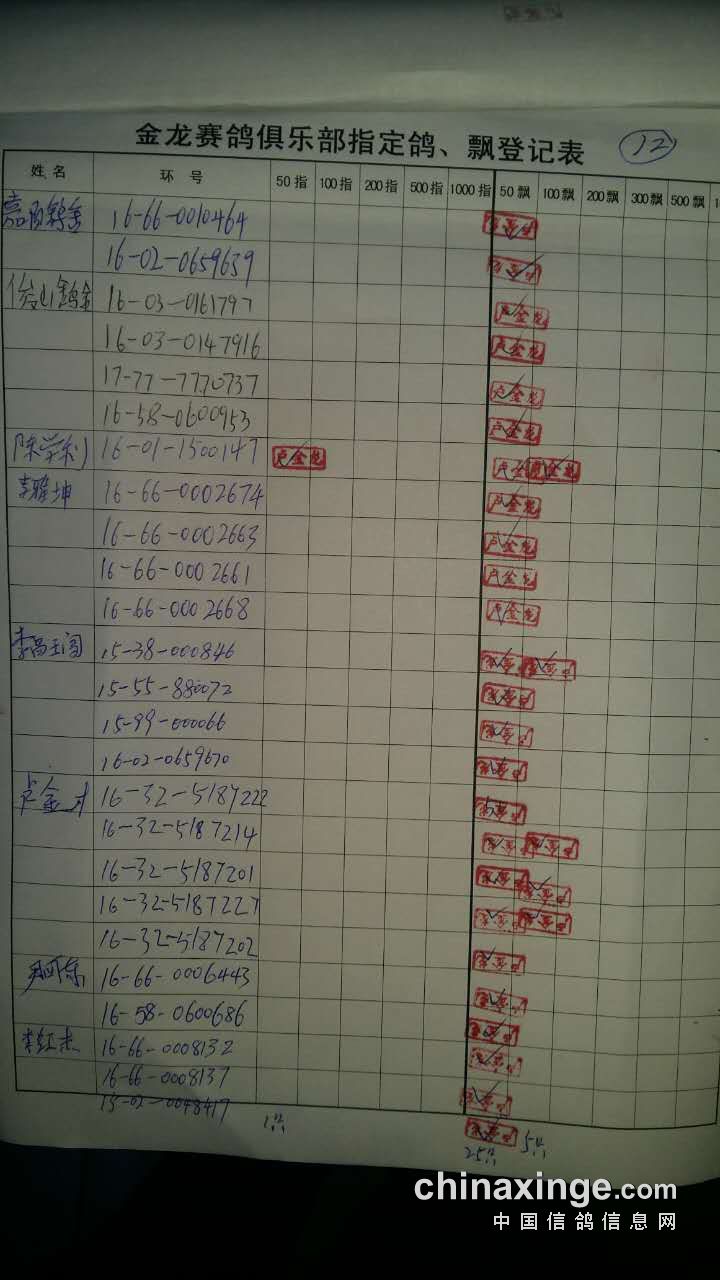 金龙赛鸽俱乐部指定鸽、飘登记表 12
姓名 环号 50指 100指 200指 500指 1000指 50飘 100飘 200飘 300飘 500飘
16-66-0010464
16-02-0659639
16-03-0161797 卢金龙
16-03-0147916 卢金龙
17-77-7770737 卢金龙
16-58-0600953 卢金龙
陈学利 16-01-1500147 卢金龙 卢金 卢金龙
16-66-0002674 卢金龙
16-66-0002663 卢金龙
16-66-0002661 卢金龙
16-66-0002668 卢金龙
15-38-000846
15-55-880072
15-99-000066
16-02-0659670
卢金才 16-32-5187222
16-32-5187214
16-32-5187201
16-32-5187227
16-32-5187202
16-66-0006443
16-58-0600686
李红杰 16-66-0008132
16-66-0008137
15-02-0048417
chinaxinge.com
中国信鸽信息网